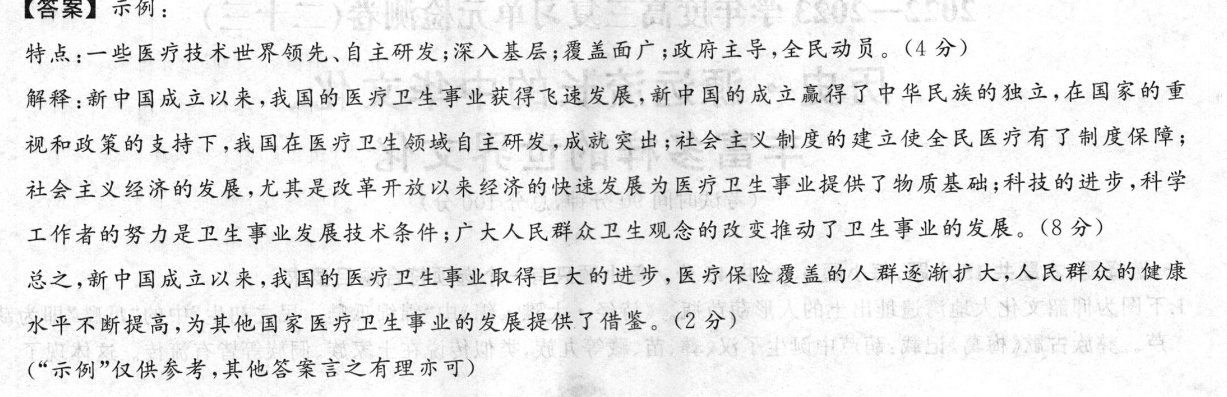 【答案】示例：
特点：一些医疗技术世界领先、自主研发；深入基层；覆盖面广；政府主导，全民动员。（4 分）
解释：新中国成立以来，我国的医疗卫生事业获得飞速发展，新中国的成立赢得了中华民族的独立，在国家的重
视和政策的支持下，我国在医疗卫生领域自主研发，成就突出；社会主义制度的建立使全民医疗有了制度保障；
社会主义经济的发展，尤其是改革开放以来经济的快速发展为医疗卫生事业提供了物质基础；科技的进步，科学
工作者的努力是卫生事业发展技术条件；广大人民群众卫生观念的改变推动了卫生事业的发展。（8 分）
总之，新中国成立以来，我国的医疗卫生事业取得巨大的进步，医疗保险覆盖的人群逐渐扩大，人民群众的健康
水平不断提高，为其他国家医疗卫生事业的发展提供了借鉴。（2 分）
（“示例”仅供参考，其他答案言之有理亦可）